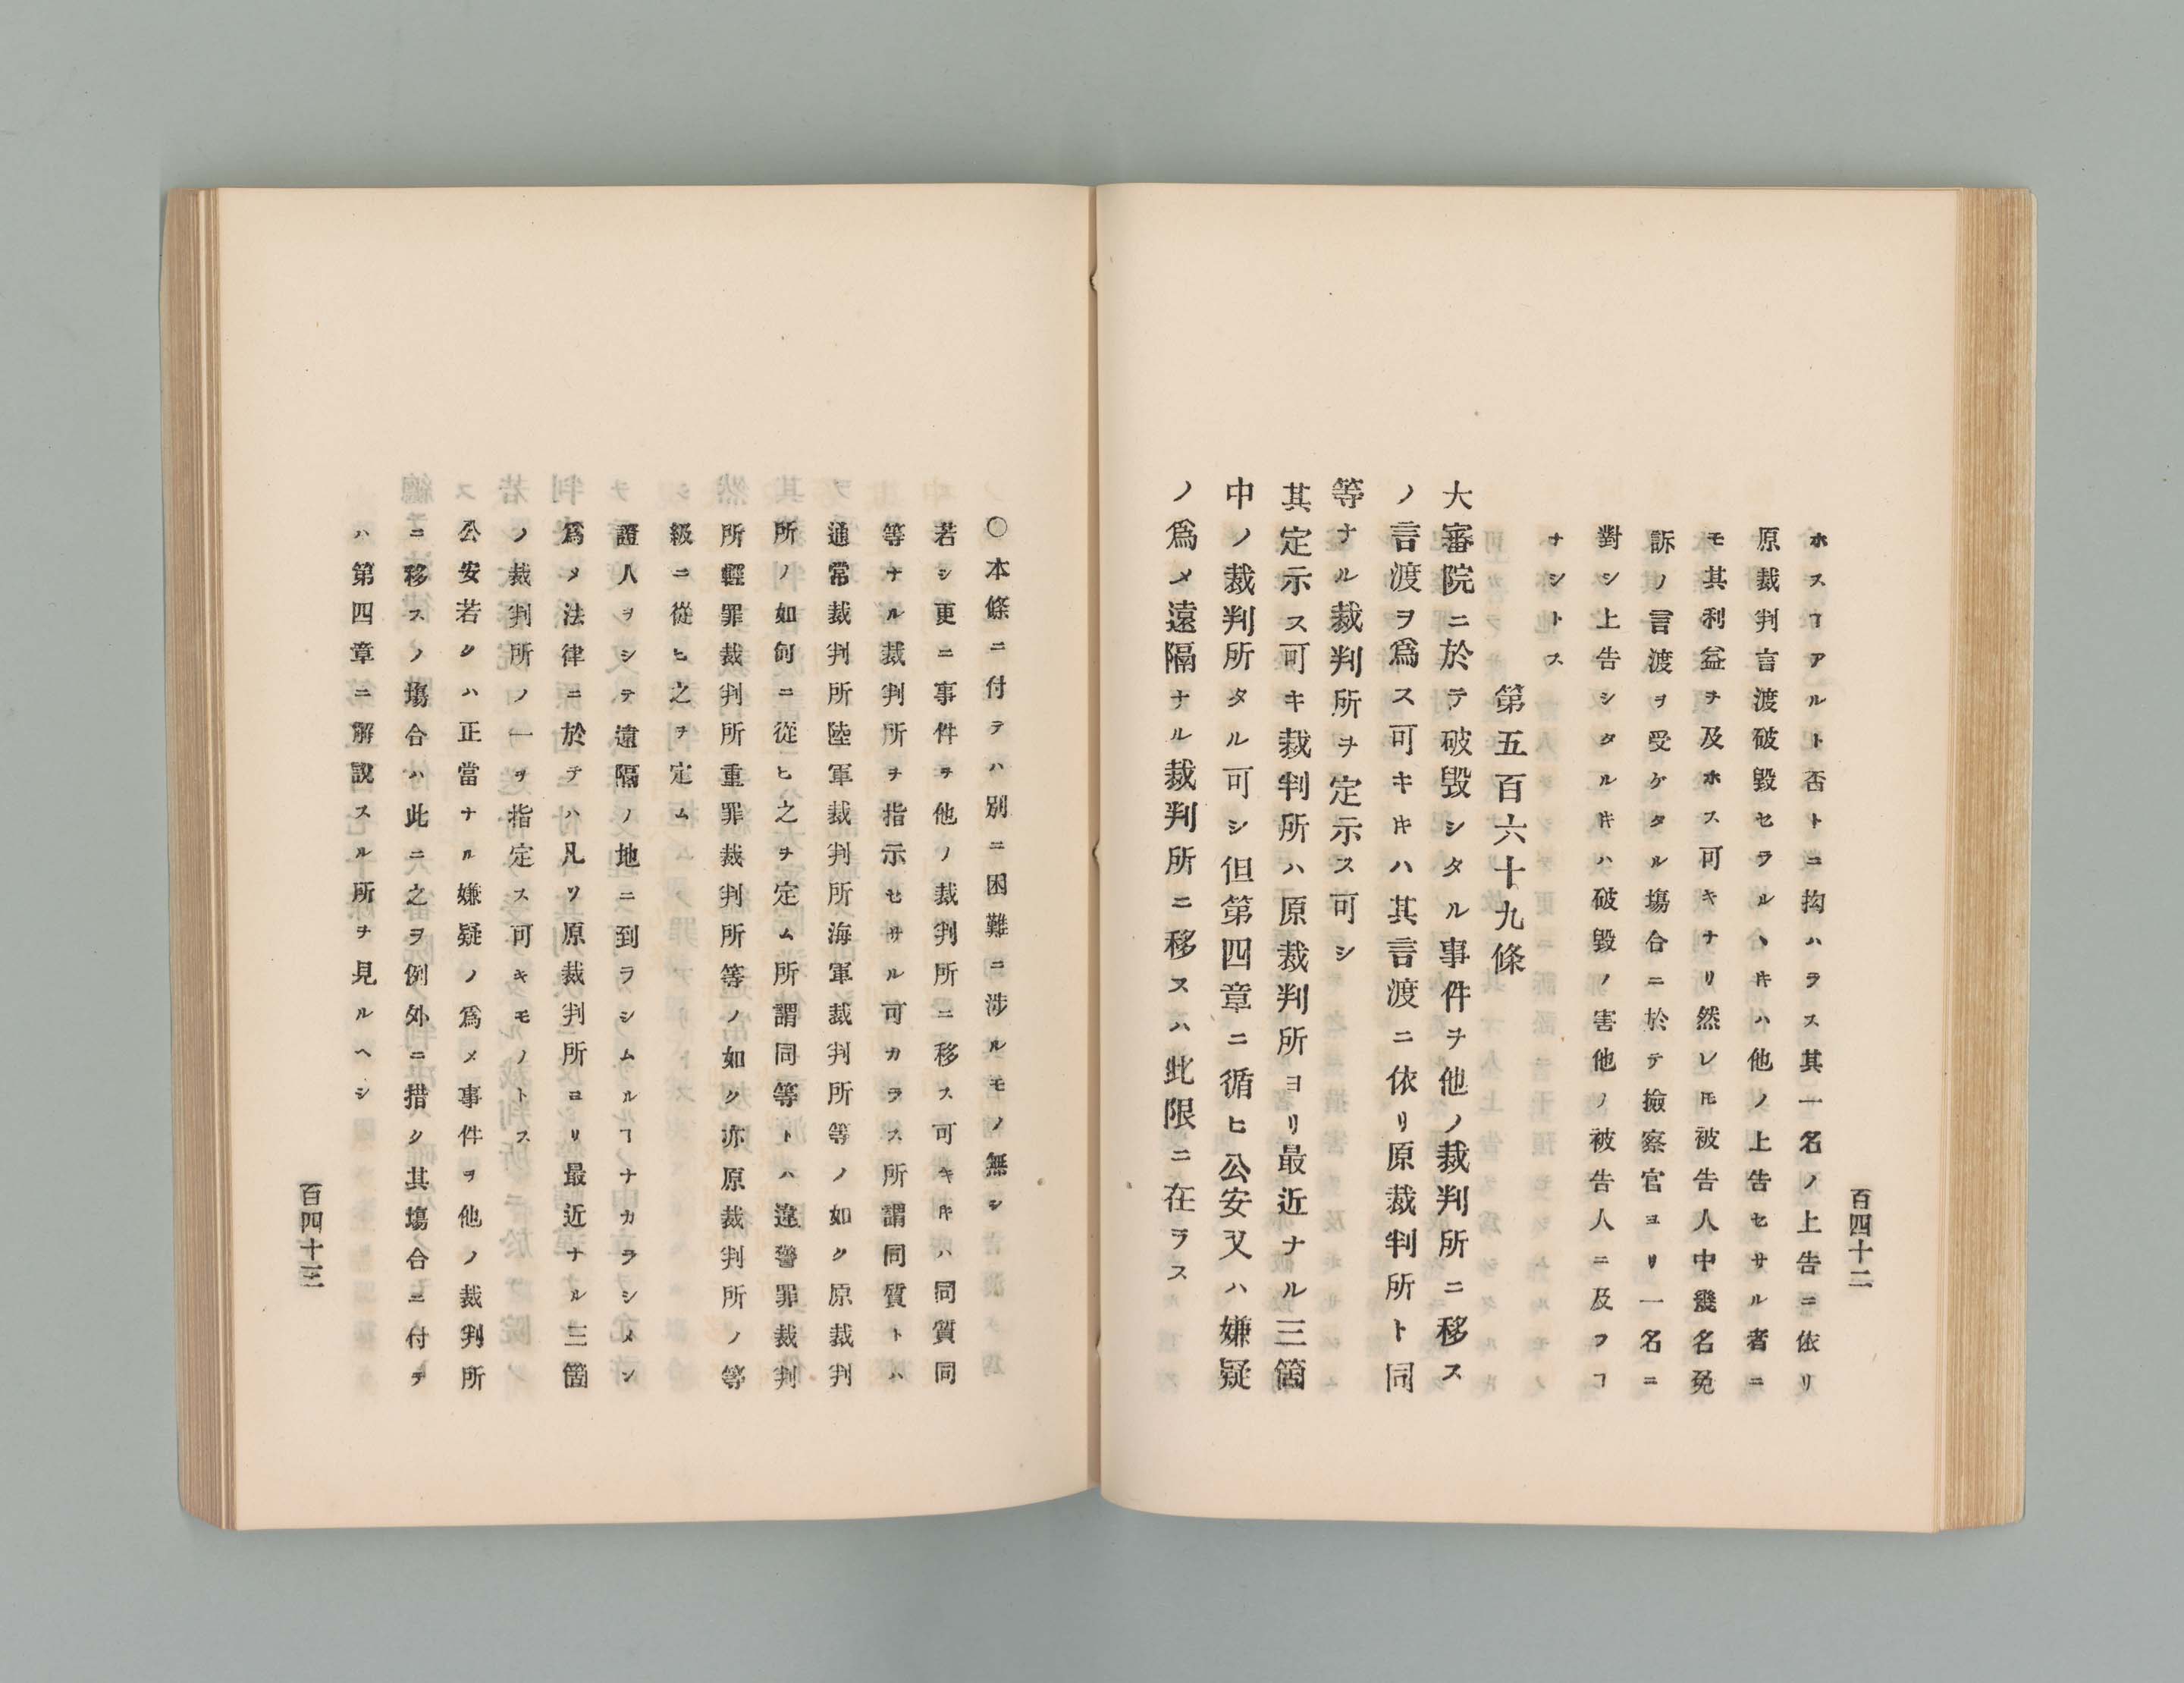 百四十二
ホスヿアルト否トニ拘ハラス其一名ノ上告ニ依リ
原裁判言渡破毀セラルヽキハ他ノ上告セサル者ニ
モ其利益ヲ及ホス可キナリ然レ𪜈被告人中幾名免
訴ノ言渡ヲ受ケタル塲合ニ於テ撿察官ヨリ一名ニ
對シ上告シタルキハ破毀ノ害他ノ被告人ニ及フヿ
ナシトス
第五百六十九條
大審院ニ於テ破毀シタル事件ヲ他ノ裁判所ニ移ス
ノ言渡ヲ爲ス可キキハ其言渡ニ依リ原裁判所ト同
等ナル裁判所ヲ定示ス可シ
其定示ス可キ裁判所ハ原裁判所ヨリ最近ナル三箇
中ノ裁判所タル可シ但第四章ニ循ヒ公安又ハ嫌疑
ノ爲メ遠隔ナル裁判所ニ移スハ此限ニ在ラス
〇本條ニ付テハ別ニ困難ニ渉ルモノ無シ
若シ更ニ事件ヲ他ノ裁判所ニ移ス可キキハ同質同
等ナル裁判所ヲ指示セサル可カラス所謂同質トハ
通常裁判所陸軍裁判所海軍裁判所等ノ如ク原裁判
所ノ如何ニ從ヒ之ヲ定ム所謂同等トハ違警罪裁判
所輕罪裁判所重罪裁判所等ノ如ク亦原裁判所ノ等
級ニ從ヒ之ヲ定ム
證人ヲシテ遠隔ノ地ニ到ラシムルヿナカラシメン
爲メ法律ニ於テハ凡ソ原裁判所ヨリ最近ナル三箇
ノ裁判所ノ一ヲ指定ス可キモノトス
公安若クハ正當ナル嫌疑ノ爲メ事件ヲ他ノ裁判所
ニ移スノ塲合ハ此ニ之ヲ例外ニ措ク其塲合ニ付テ
ハ第四章ニ解說スル所ヲ見ルヘシ
百四十三